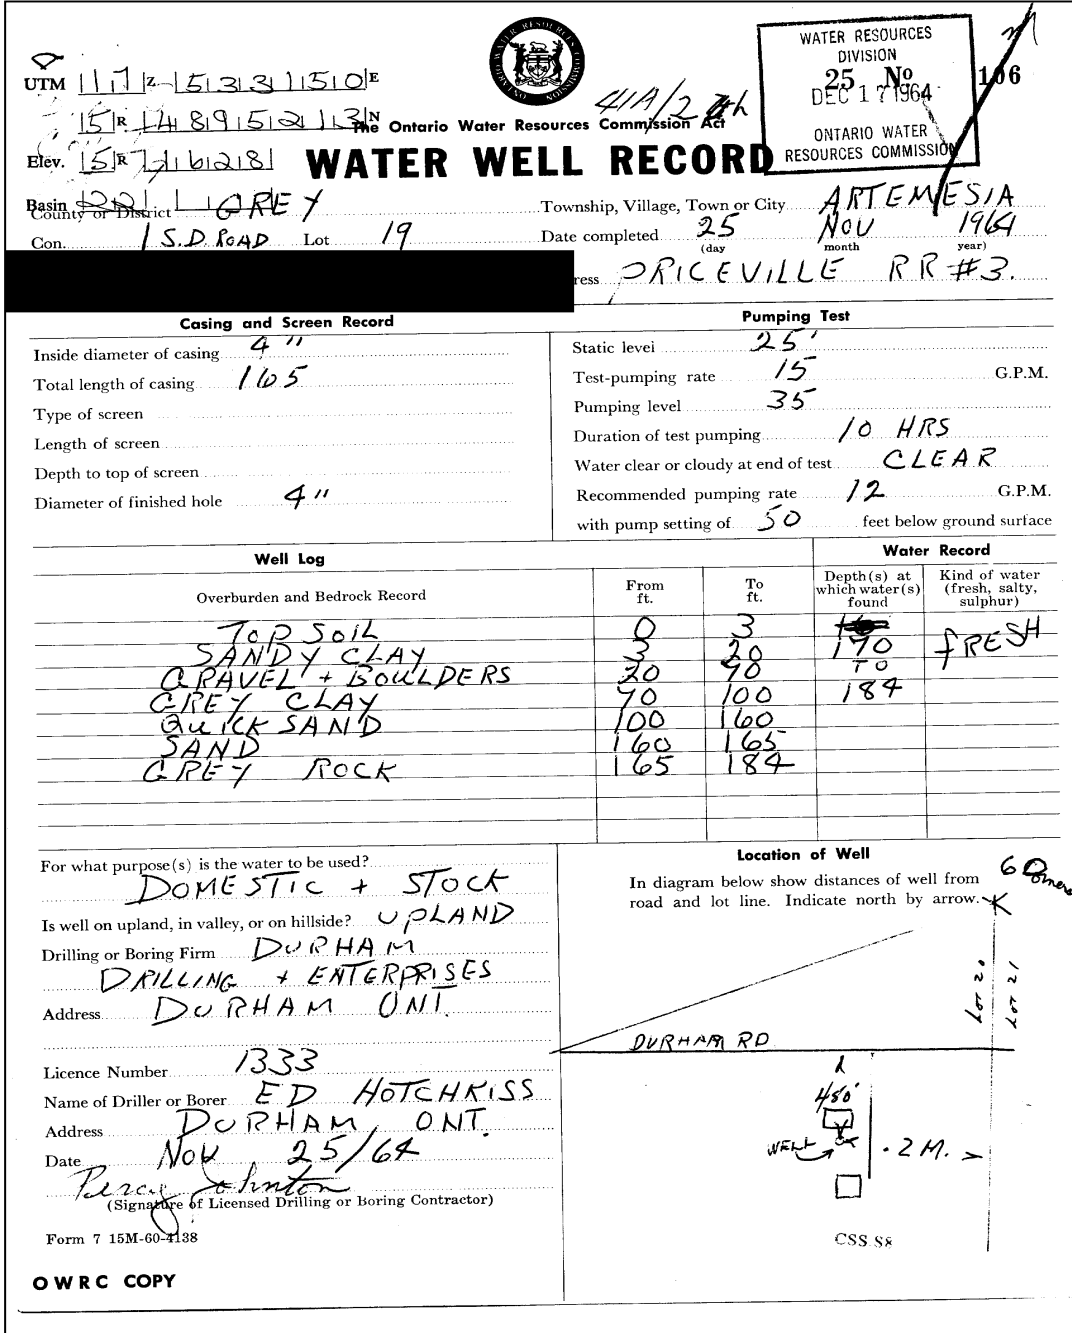 WATER RESOURCES
DIVISION
25 No 106
DEC 17 1964
ONTARIO WATER
RESOURCES COMMISSION
ONTARIO WATER RESOURCES COMMISSION
UTM 17 Z 533150 E
5 R 4895213 N
41A/2
The Ontario Water Resources Commission Act
Elev. 5 R 1628
WATER WELL RECORD
Basin 22
County or District GREY Township, Village, Town or City ARTEMESIA
Con. 1 S.D. ROAD Lot 19 Date completed 25 NOV 1964
(day month year)
ress PRICEVILLE RR #3.
Casing and Screen Record
Inside diameter of casing 4"
Total length of casing 165
Type of screen
Length of screen
Depth to top of screen
Diameter of finished hole 4"
Pumping Test
Static level 25'
Test-pumping rate 15 G.P.M.
Pumping level 35
Duration of test pumping 10 HRS
Water clear or cloudy at end of test CLEAR
Recommended pumping rate 12 G.P.M.
with pump setting of 50 feet below ground surface
Well Log Water Record
Overburden and Bedrock Record From ft. To ft. Depth(s) at which water(s) found Kind of water (fresh, salty, sulphur)
TOP SOIL 0 3
SANDY CLAY 3 20 170 FRESH
GRAVEL + BOULDERS 20 70 TO
GREY CLAY 70 100 184
QUICK SAND 100 160
SAND 160 165
GREY ROCK 165 184
For what purpose(s) is the water to be used?
DOMESTIC + STOCK
Is well on upland, in valley, or on hillside? UPLAND
Drilling or Boring Firm DURHAM
DRILLING + ENTERPRISES
Address DURHAM ONT.
Licence Number 1333
Name of Driller or Borer ED HOTCHKISS
Address DURHAM, ONT.
Date NOV 25/64
Percy Johnston
(Signature of Licensed Drilling or Boring Contractor)
Form 7 15M-60-4138
OWRC COPY
Location of Well
In diagram below show distances of well from
road and lot line. Indicate north by arrow.
LOT 20
LOT 21
DURHAM RD
450'
WELL
.2 M.
CSS.S8